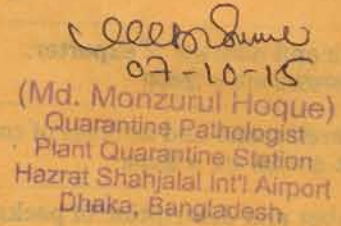 07-10-15
(Md. Monzurul Hoque)
Quarantine Pathologist
Plant Quarantine Station
Hazrat Shahjalal Int'l Airport
Dhaka, Bangladesh